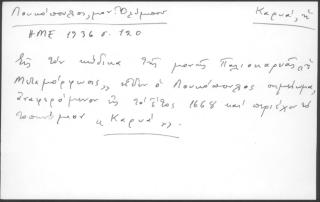 Λουκόπουλος, μον. Ὀλύμπου Καρυά, ἡ
ΗΜΕ 1936 σ. 120
Εἰς τὸν κώδικα τῆς μονῆς Παλιοκαρυᾶς, ἡ
Μεταμόρφωσις, εἶδεν ὁ Λουκόπουλος σημείωμα,
ἀναφερόμενον εἰς τὸ ἔτος 1668 καὶ περιέχον τὸ
τοπωνύμιον «Καρυά».